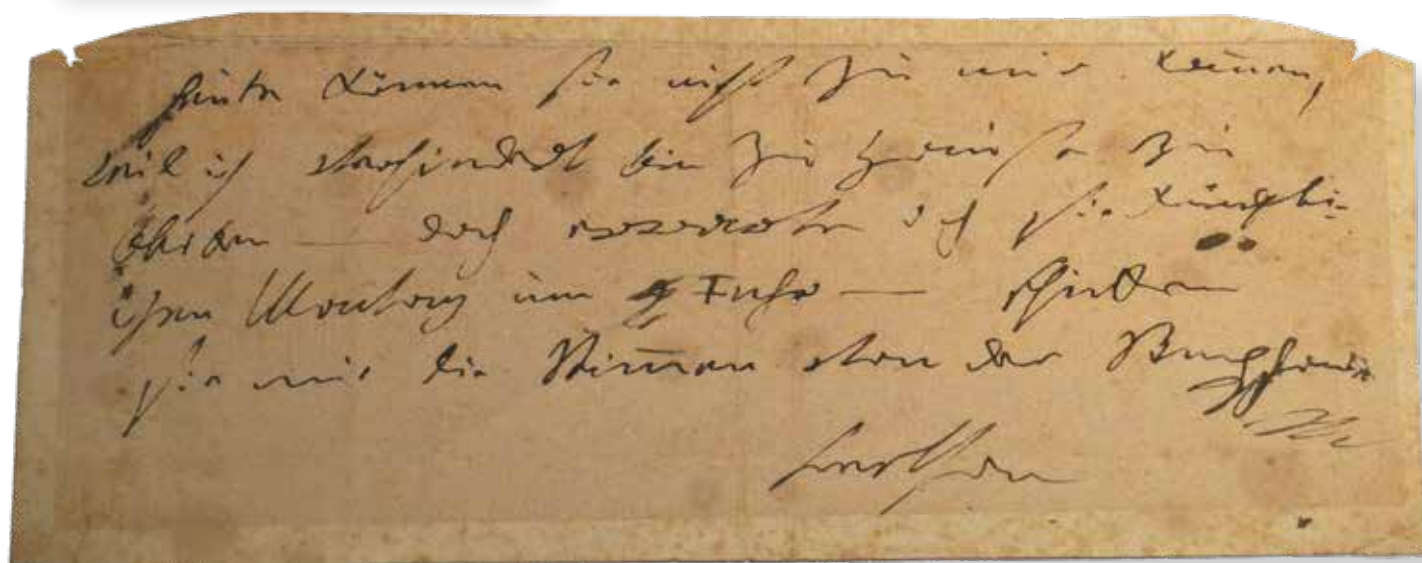 heute können sie nicht zu mir kommen,
weil ich verhindert bin zu Hause zu
bleiben — doch erwarte ich sie künfti-
gen Montag um Fuhr — schicken
sie mir die Stimmen von der
Beethoven